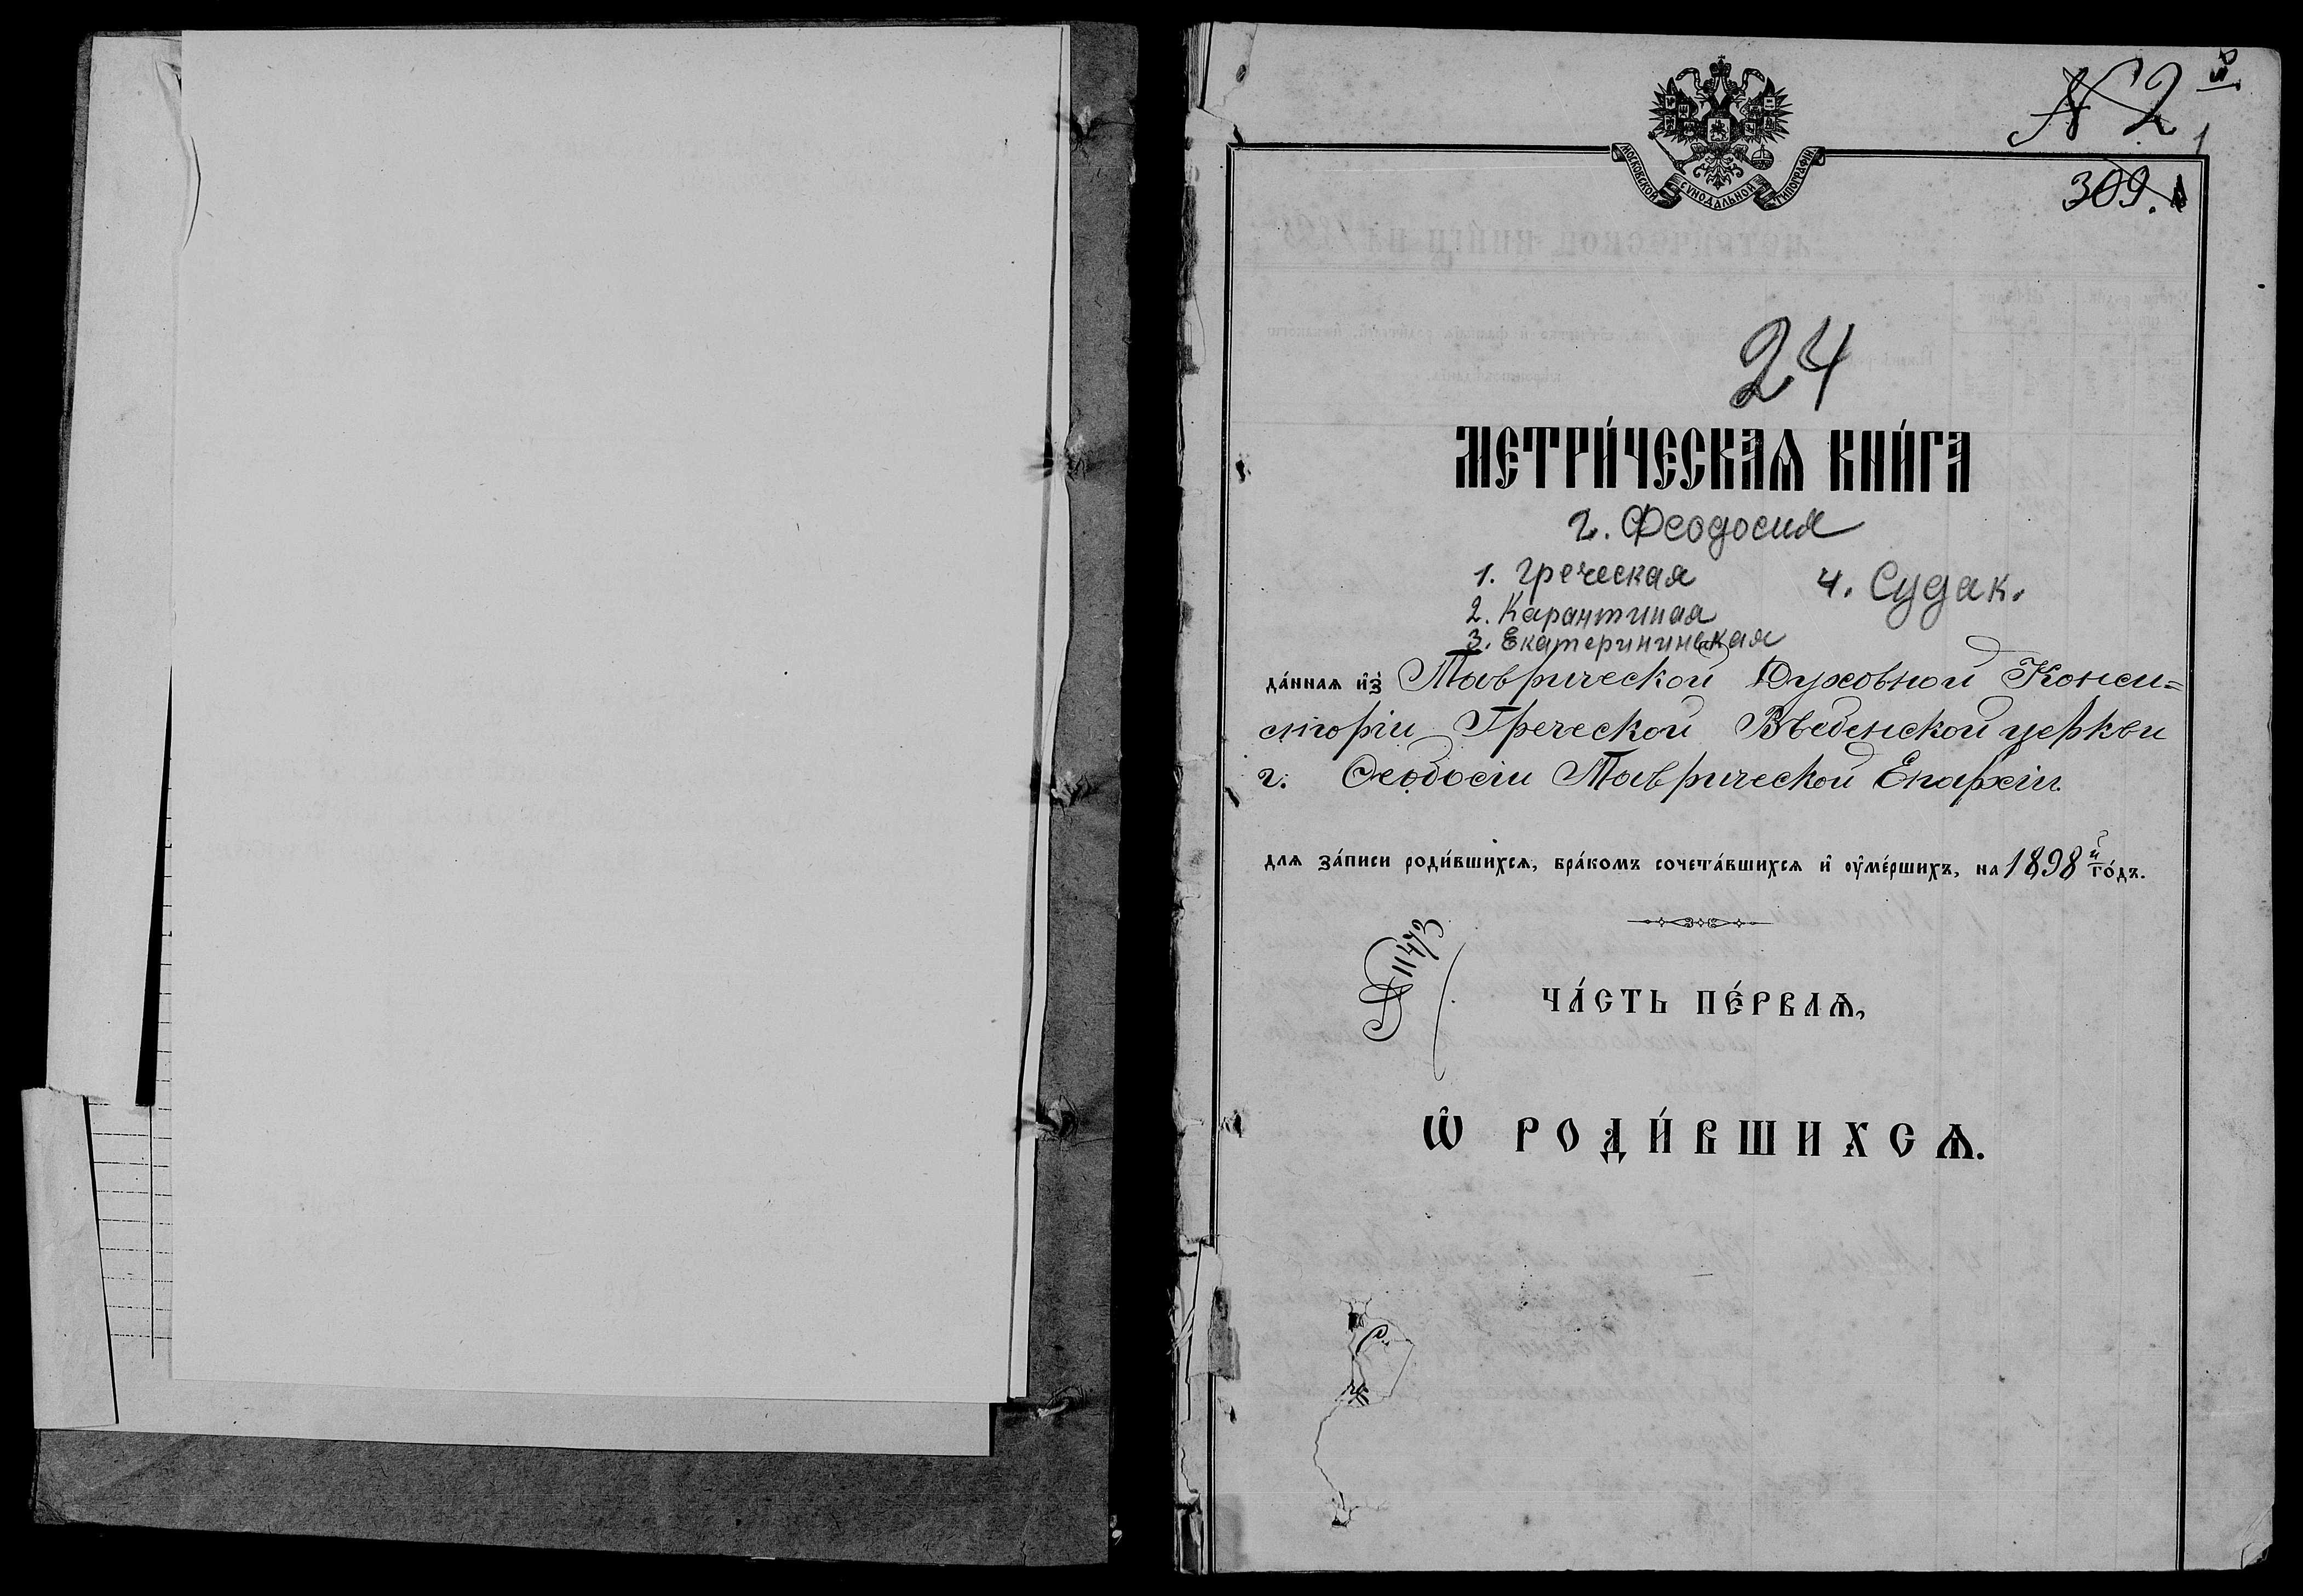 N 2
1
309.
МОСКОВСКОЙ СѴНОДАЛЬНОЙ ТИПОГРАФІИ.
24
МЕТРИ́ЧЕСКАѦ КНИ́ГА
г. Феодосия
1. Греческая
4. Судак.
2. Карантиная
3. Екатерининская
да́ннаѧ и҆з̾ Таврической Духовной Конси=
сторіи Греческой Въведенской церкви
г. Ѳеодосіи Таврической Епархіи.
длѧ за́писи роди́вшихсѧ, бра́комъ сочета́вшихсѧ и҆ оу҆ме́ршихъ, на 1898 й го́дъ.
№ 11473
ЧА́СТЬ ПЕ́РВАѦ,
Ѽ РОДИ́ВШИХСѦ.